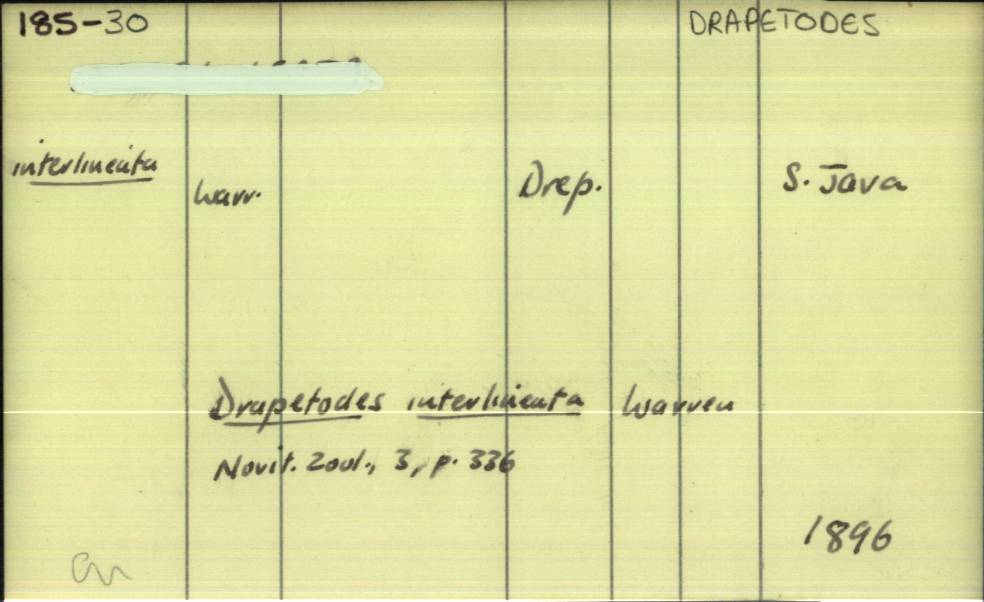 185-30 DRAPETODES
interlineata
Warr. Drep. S. Java
Drapetodes interlineata Warren
Novit. Zool., 3, p. 336
1896